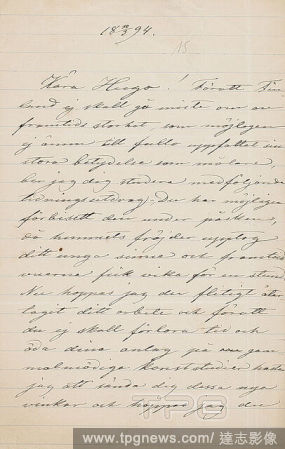 18 11/3 94.
15
Kära Hugo! Föratt Fin-
land ej skall gå miste om en
framtids storhet, som möjligen
ej ännu till fullo uppfattat sin
stora betydelse som målare,
ber jag dig studera medföljande
tidningsutdrag. Du har möjligen
förbisett den under påsken,
då hemmets fröjder upptog
ditt unga sinne och framtids
vyerna fick vika för en stund
Nu hoppas jag du flitigt åter
tagit ditt arbete och föratt
du ej skall förlora tid och
öda dina anlag på gam
malmodiga konststudier
jag att sända dig dessa nya
vinkar och hoppas jag du
TPG
www.tpgnews.com/達志影像